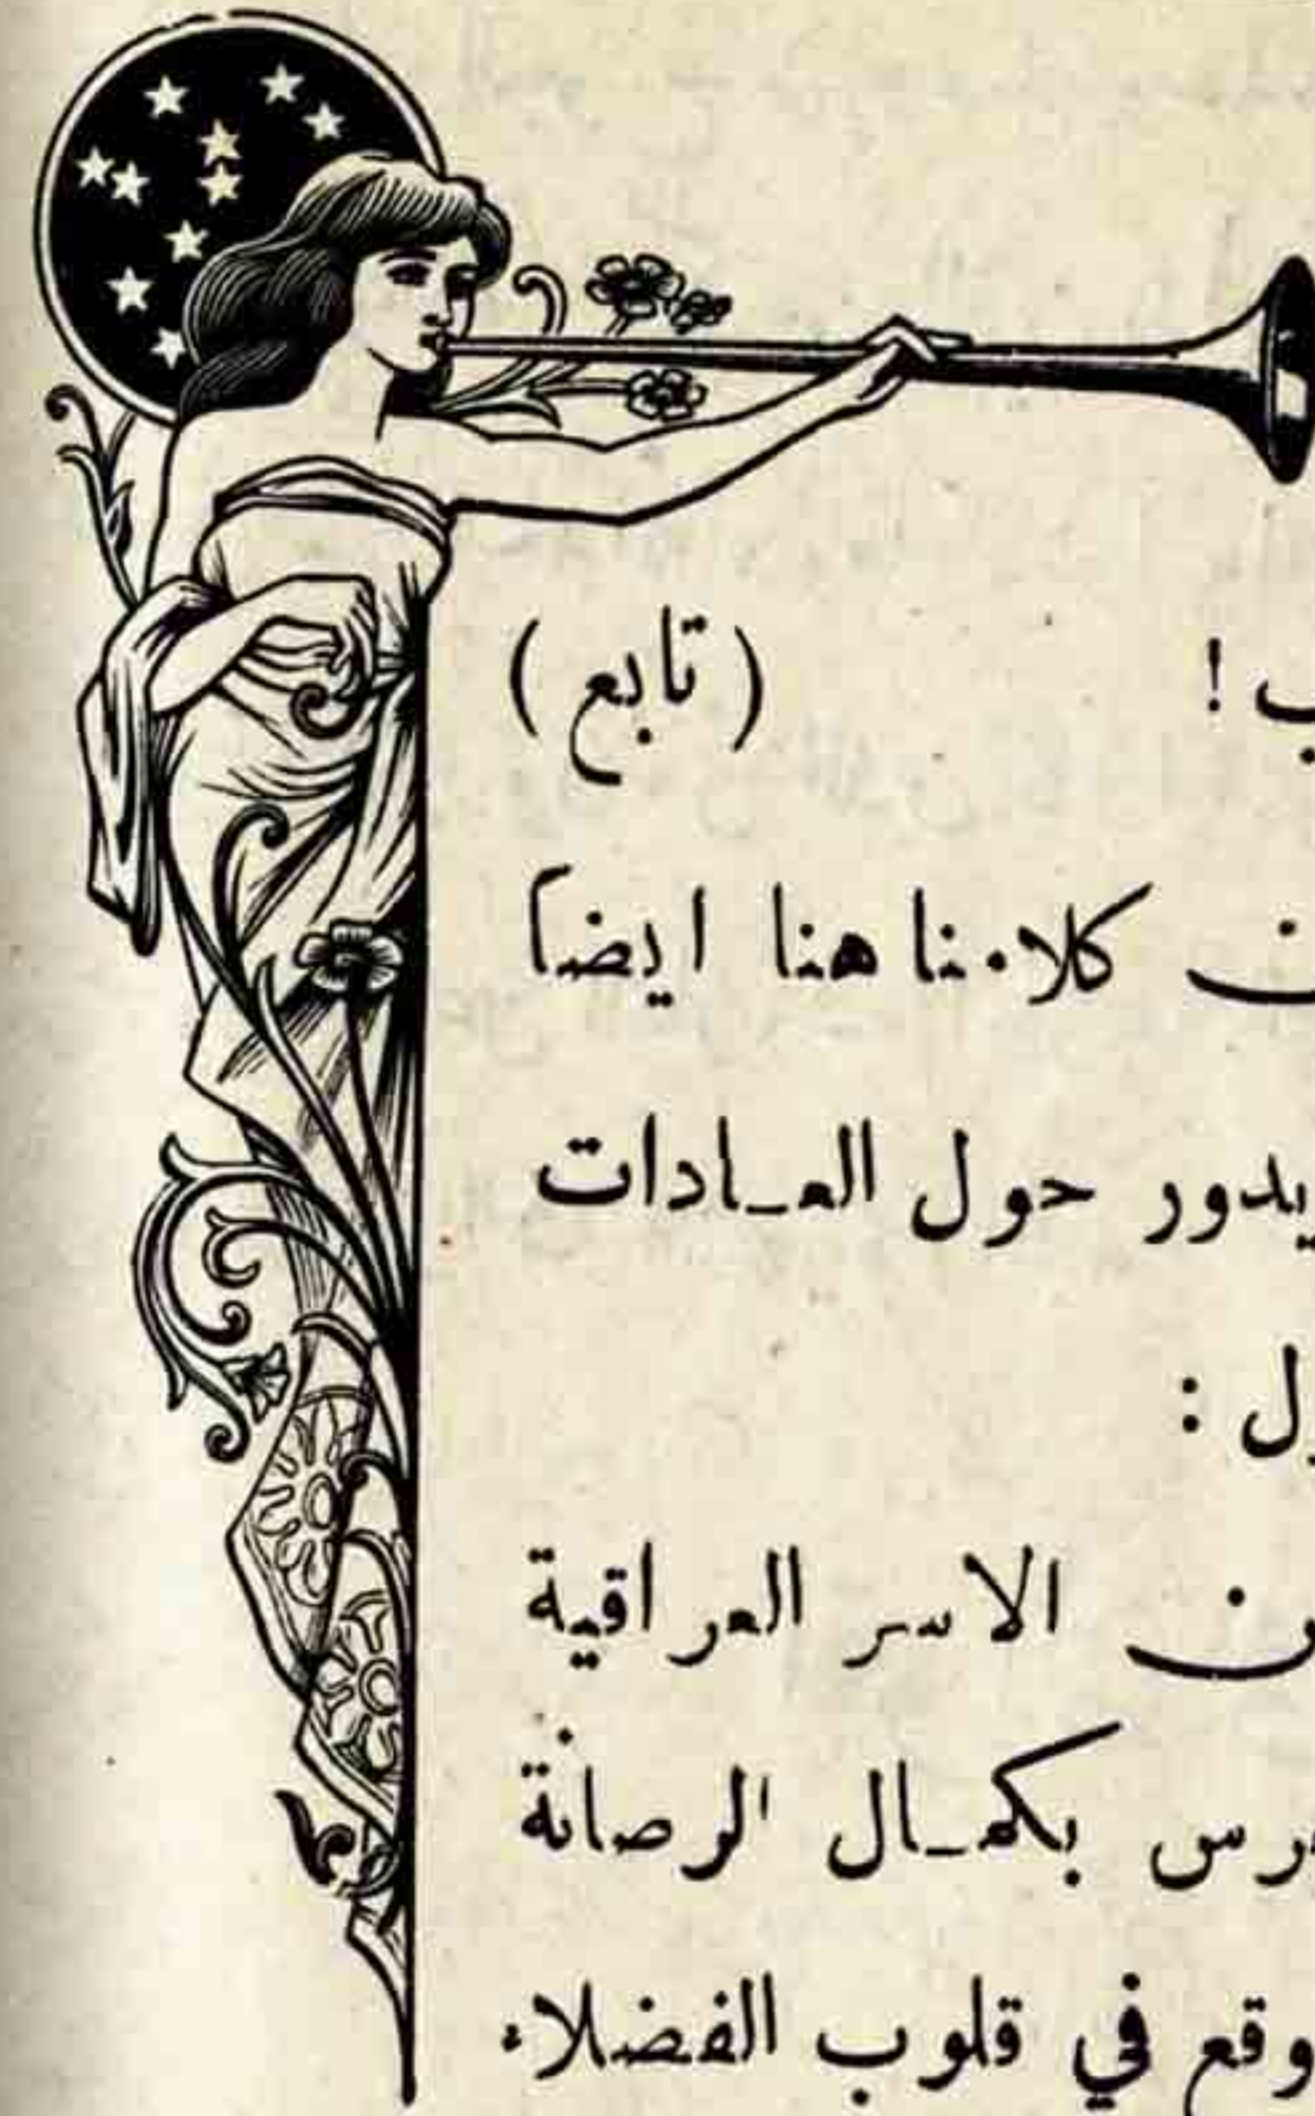 ! (تابع)
كلامنا هنا ايضاً
يدور حول العـادات
:
الاسر العراقية
بكمـال الرصانة
وقع في قلوب الفضلاء